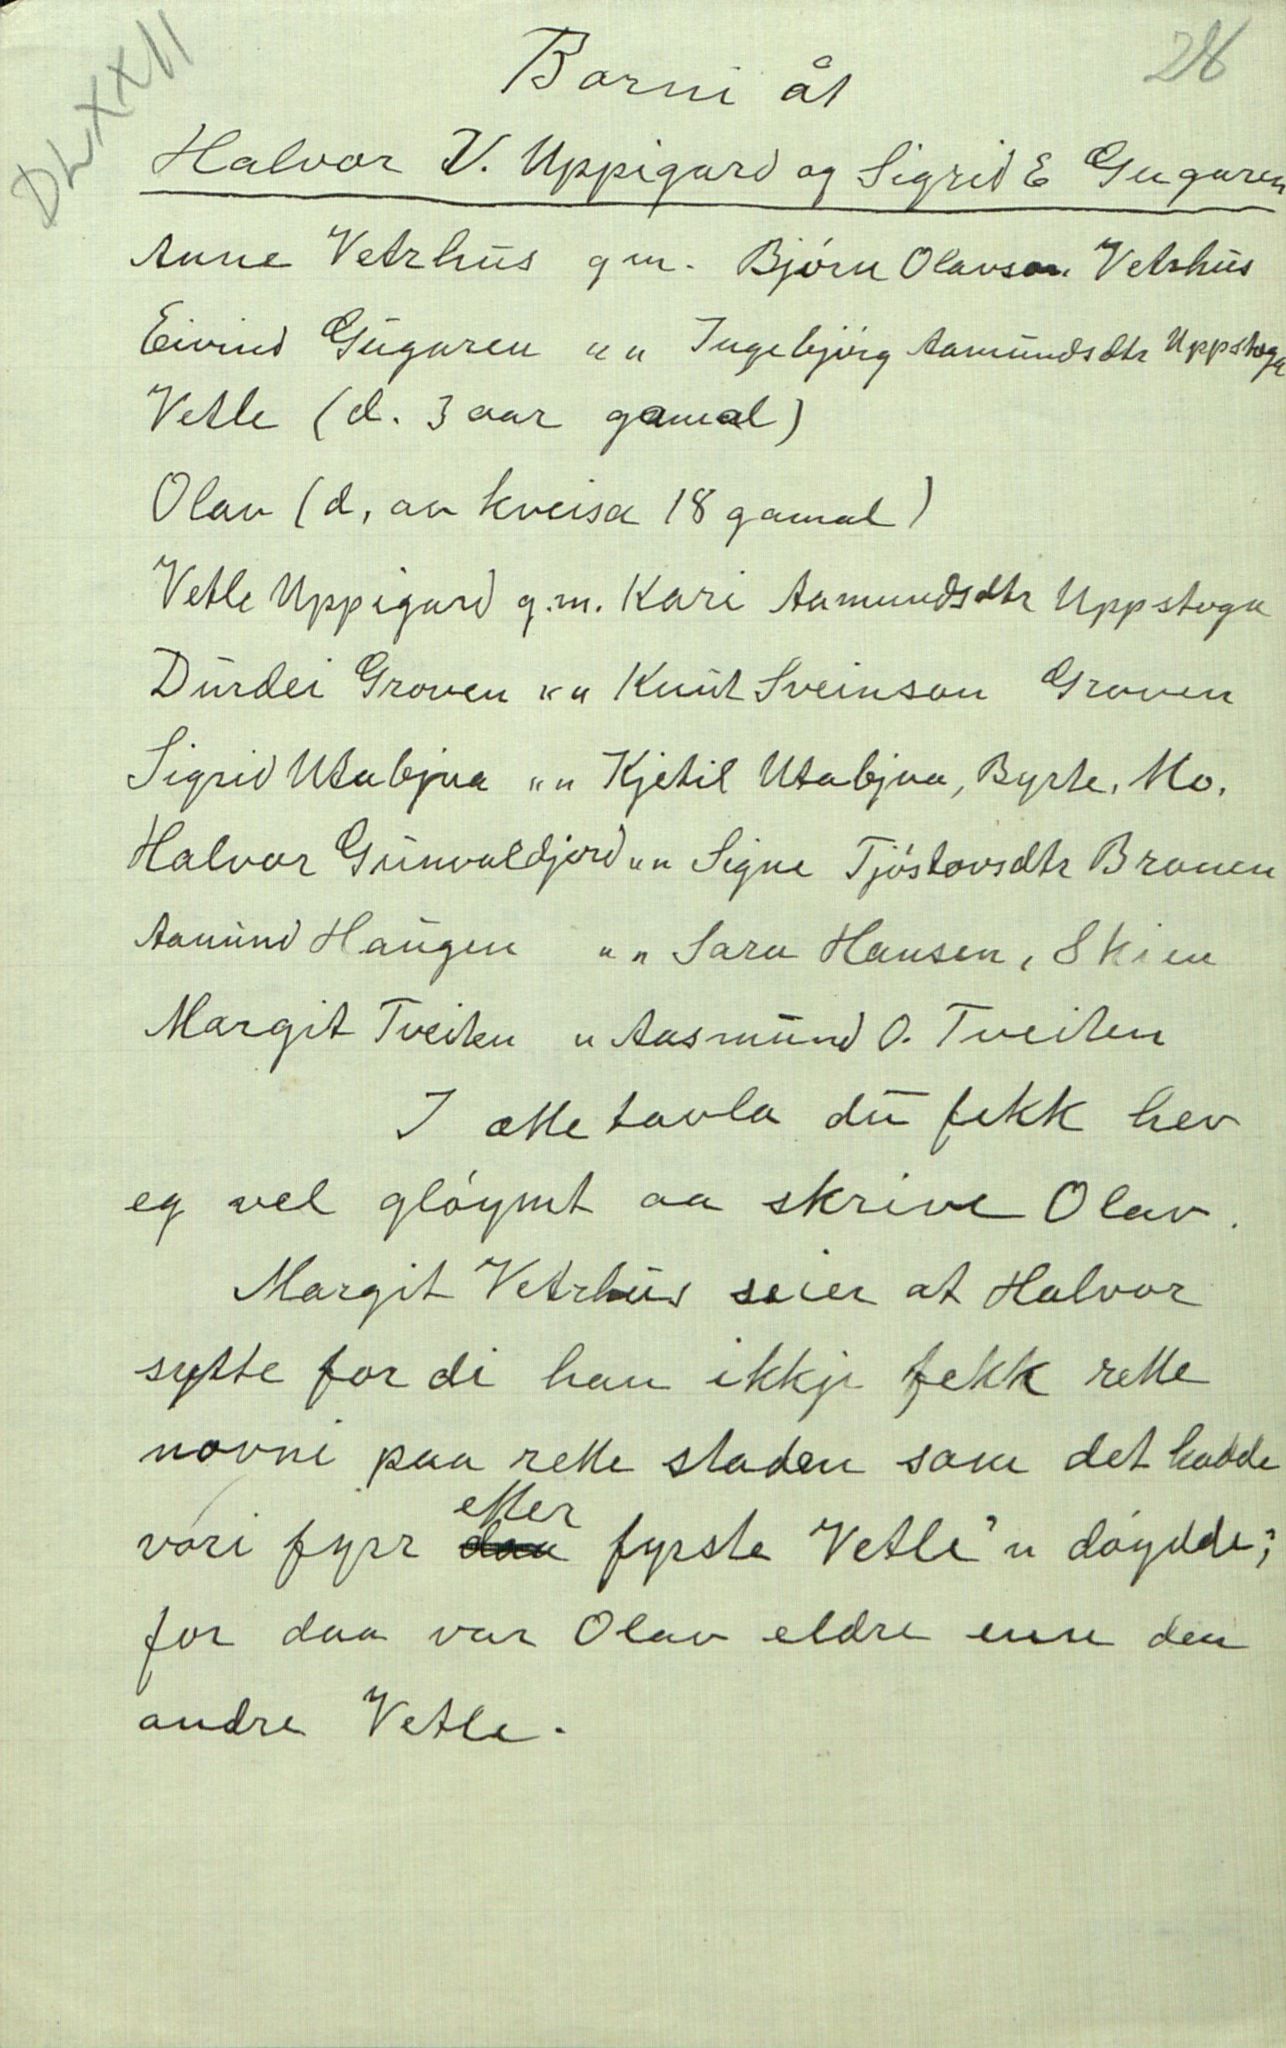 28
DLXXII
Borni åt
Halvor V. Uppigard og Sigrid E Gugaren
Anne Vetrhus g m. Bjórn Olavson Vetrhus
Eivind Gugaren " " Ingebjórg Aamundsdtr Uppstoga
Vetle (d. 3 aar gamal)
Olav (d, av kveisa 18 gamal)
Vetle Uppigard g.m. Kari Aamundsdtr Uppstoga
Durdei Groven " " Knut Sveinson Groven
Sigrid Utabjua " " Kjetil Utabjua, Byrte, Mo.
Halvor Gunvaldjord " " Signe Tjóstovsdtr Bronen
Aamund Haugen " " Sara Hansen, Skien
Margit Tveiten " Aasmund O. Tveiten
I ættetavla du fekk hev
eg vel glóymt aa skrive Olav.
Margit Vetrhus seier at Halvor
sytte for di han ikkje fekk rette
novni paa rette staden som det hadde
vori fyrr etter fyrste Vetle'n dóydde;
for daa var Olav eldre enn den
andre Vetle.